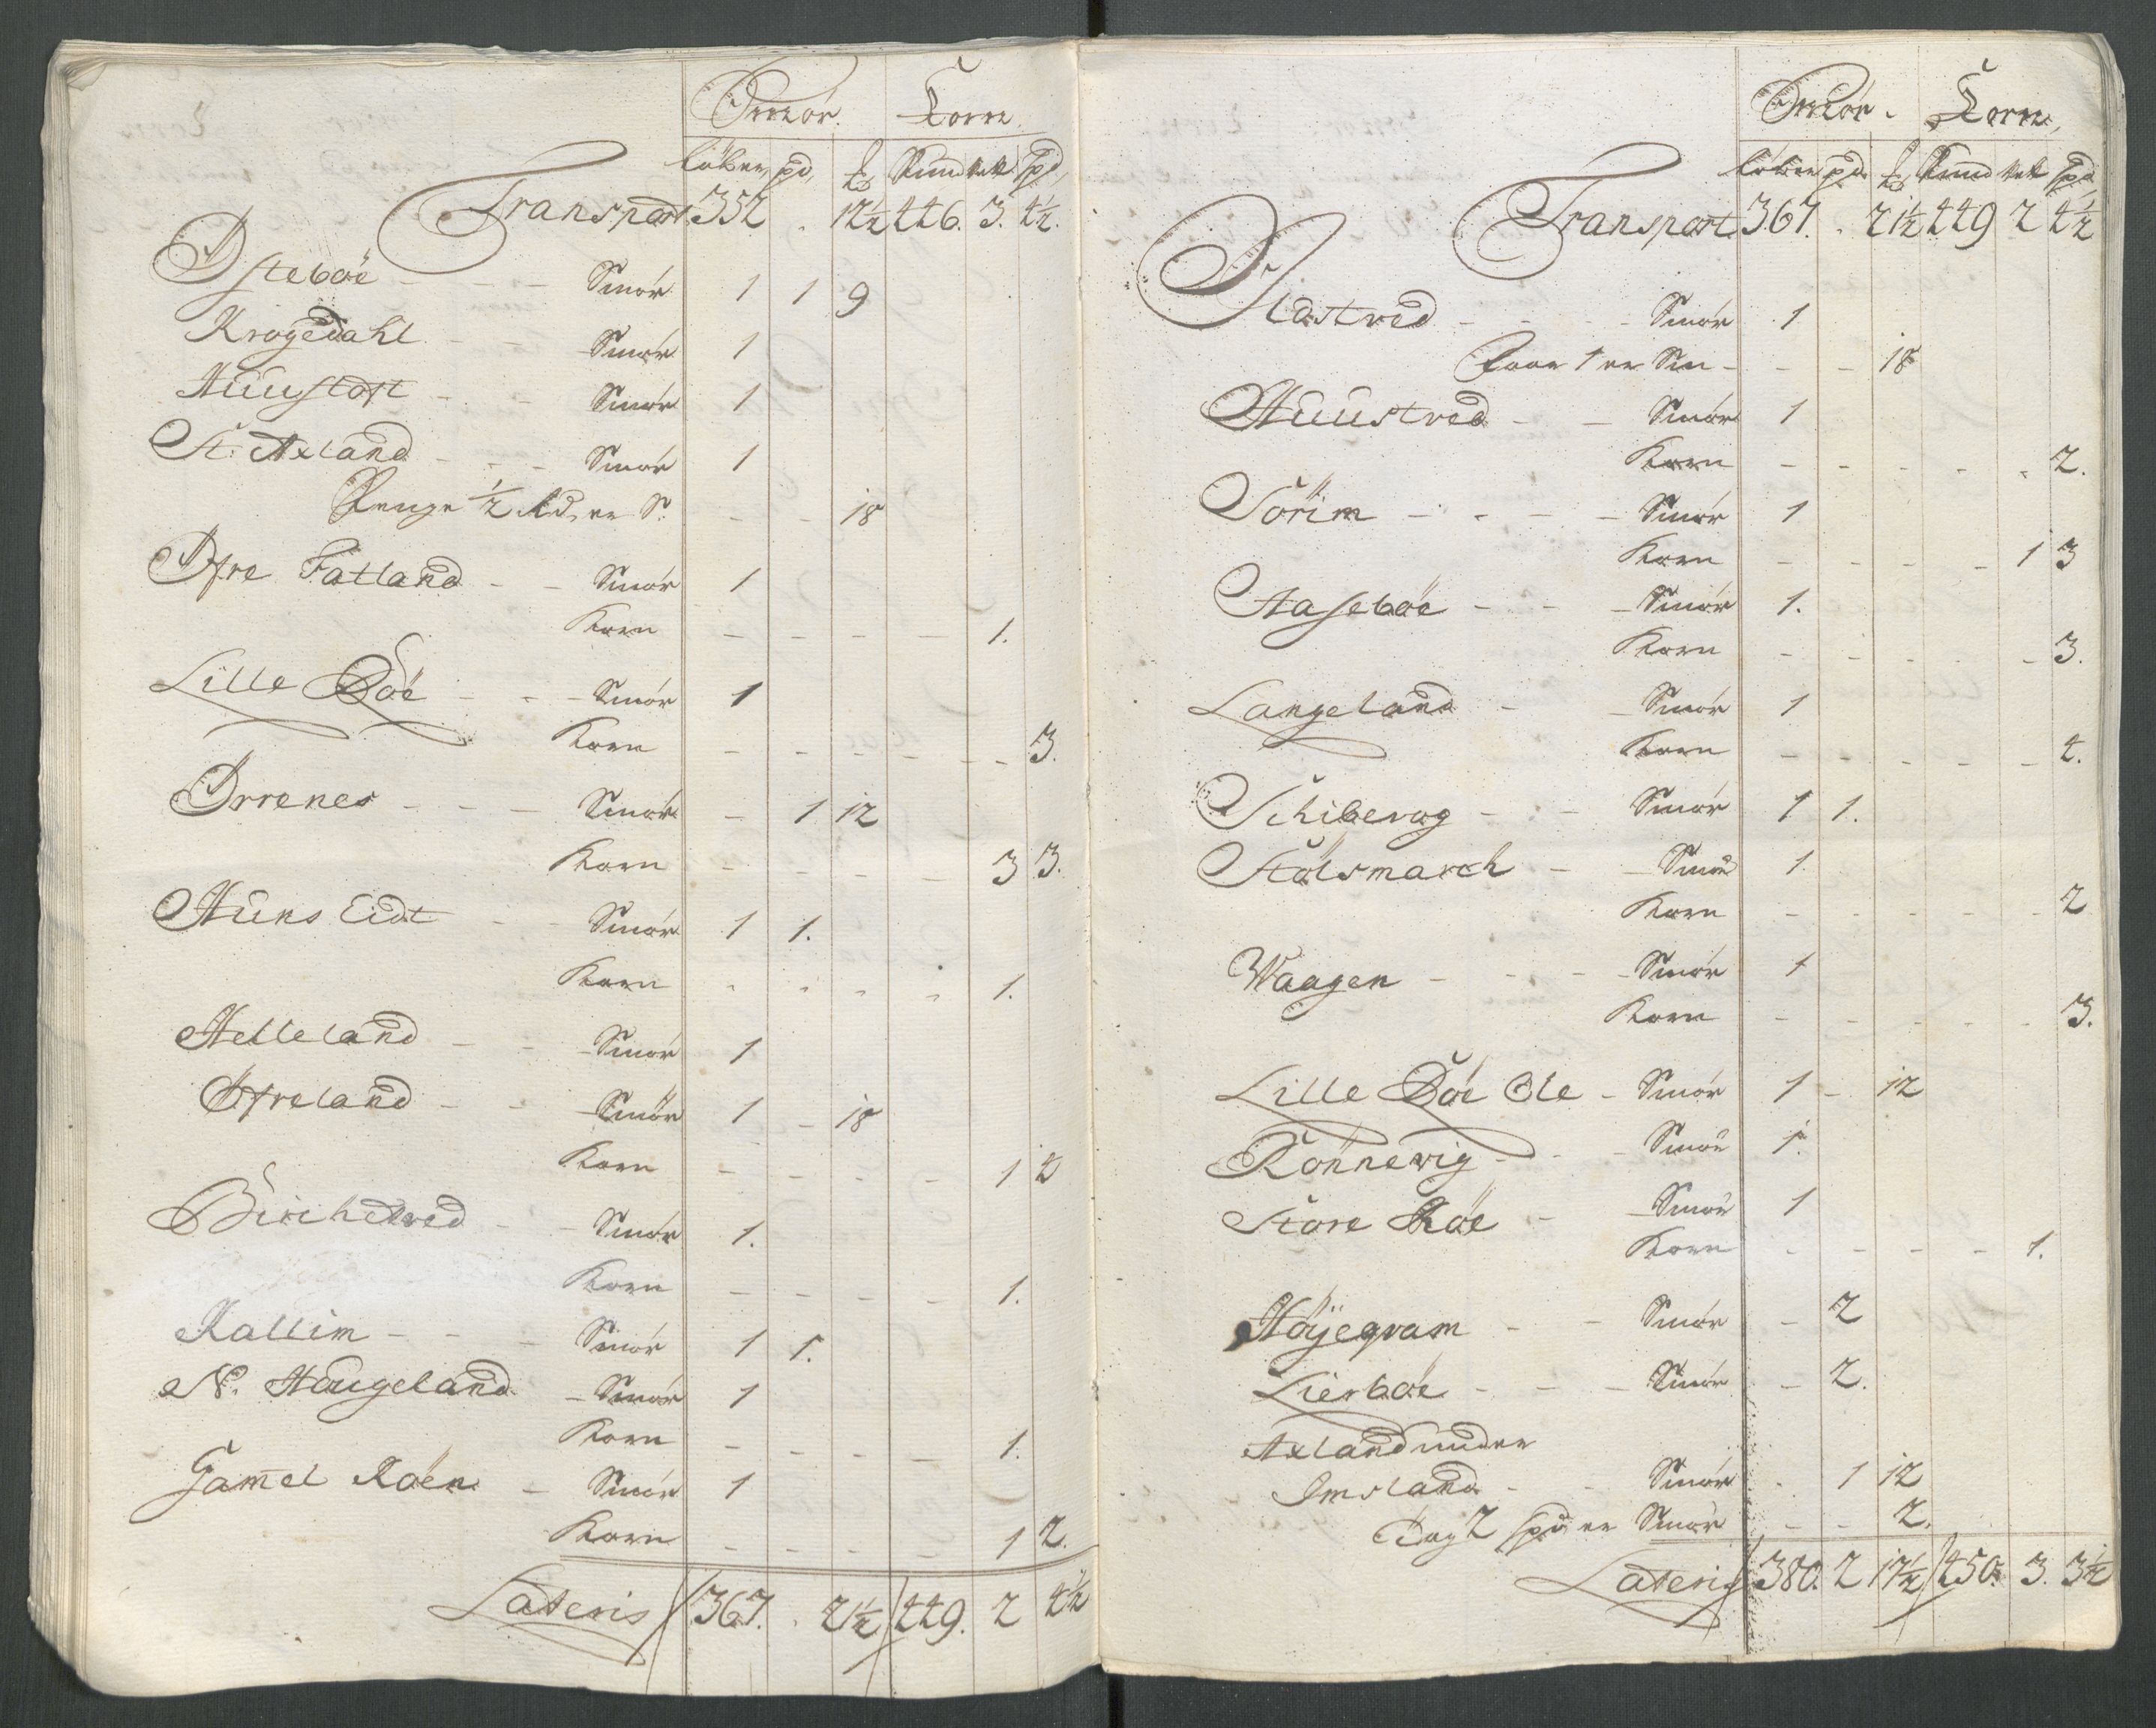 Smör. Korn
Löber, pd, ℔ Pund vett Spd,
Transport 352 . 12½ 446. 3. 4½.
Østebøe - - - Smör 1 1 9
Kragedahl - - Smör 1
Huustoft - - Smör 1
St. Axland - - - Smör 1
Penge ½ Rd, er S. - - 18
Øfre Fatland - - Smör 1
Korn - - - - 1.
Lille Böe - - - Smör 1
Korn - - - - - 3.
Ørrenes - - - Smör - 1 12
Korn - - - - 3 3.
Huns Eidt - - Smör 1 1.
Korn - - - - 1.
Helleland - - Smör 1
Öfreland - - Smör 1 - 18
Korn - - - - 1 4
Birchetved - - Smör 1.
Korn - - - - 1.
Kallim - - - Smör 1 1.
N. Haugeland - Smör 1
Korn - - - - 1.
Gam̄el Röen - Smör 1
Korn - - - - 1 2.
Lateris 367. . 21½ 449. 2 4½
Smör. Korn,
Löber pd. ℔ Pund vett Spd
Transport 367. . 21½ 449 2 4½
Hastved - - - Smör 1
Faar 1 er Sm - - - 18
Huustved - - Smör 1
Korn - - - - - 2.
Sörim - - - - Smör 1
Korn - - - - 1 3
Aasebøe - - - Smör 1.
Korn - - - - - 3.
Langeland - - Smör 1
Korn - - - - - 4.
Schibevog - - Smör 1 1.
Stölsmarch - - Smör 1.
Korn - - - - - 2
Waagen - - - Smör 1
Korn - - - - - 3.
Lille Böe Ole - Smör 1 - 12
Rönnevig - - - Smör 1.
Store Röe - - Smör 1
Korn - - - - 1.
Höÿegvam - - Smör - 2
Lierböe - - - Smör - 2.
Axland under
Imsland - - Smör - 1 12
Bug 2 Spd er Smör - - 2.
Lateris 380. 2 17½ 450. 3. 3½